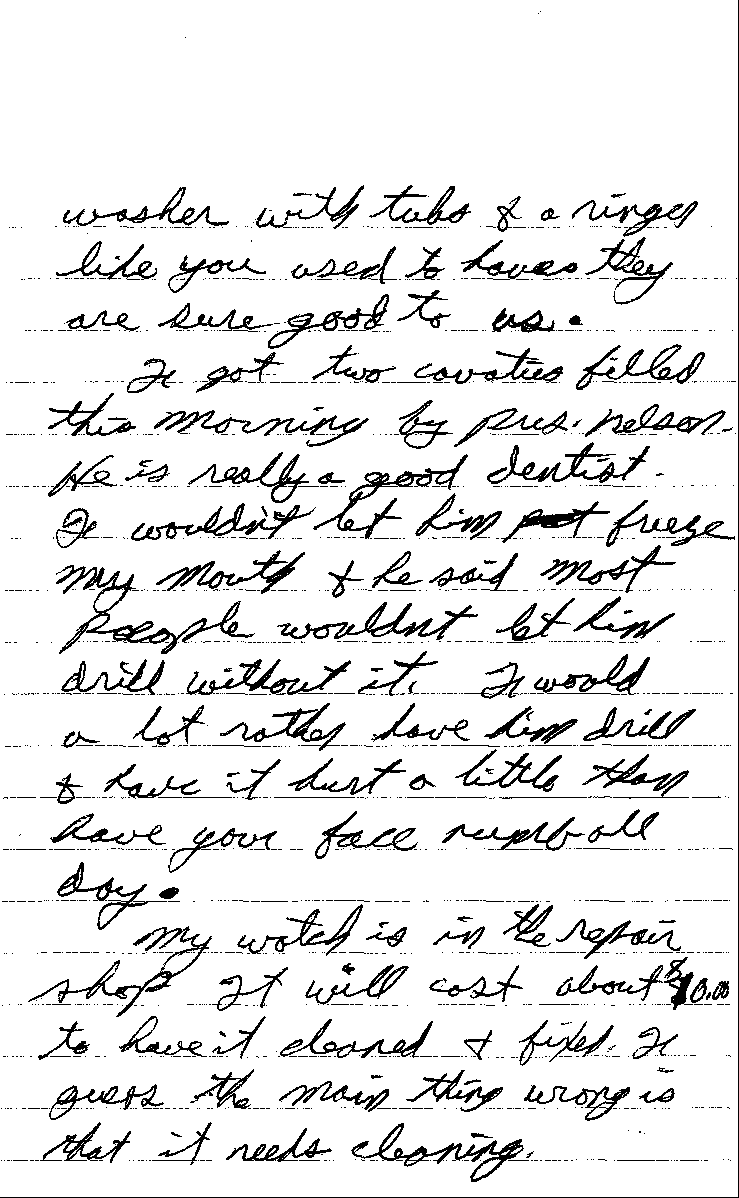 washer with tubs & a ringer
like you used to have they
are sure good to us.
I got two cavaties filled
this morning by pres. nelson.
He is really a good dentist.
I wouldn't let him freeze
my mouth & he said most
people wouldnt let him
drill without it. I would
a lot rather have him drill
& have it hurt a little than
have your face numb all
day.
my watch is in the repair
shop It will cost about $10.00
to have it cleaned & fixed. I
guess the main thing wrong is
that it needs cleaning.